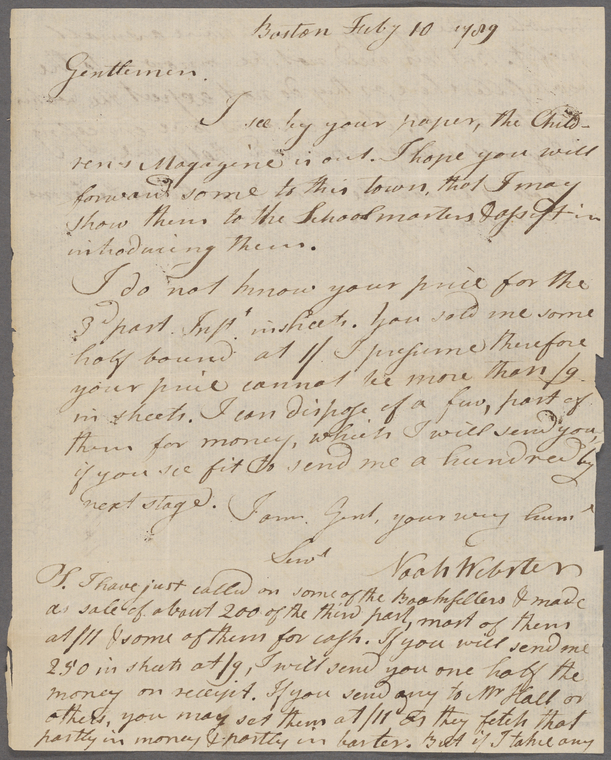 Boston Feby 10 1789
Gentlemen.
I see by your paper, the Child-
ren's Magazine is out. I hope you will
forward some to this town, that I may
show them to the Schoolmasters & assist in
introducing them.
I do not know your price for the
3d part. Inst. in sheets. You sold me some
half bound at 1/ I presume therefore
your price cannot be more than /9
in sheets. I can dispose of a few, part of
them for money, which I will send you,
if you see fit to send me a hundred by
next stage. I am, Gent, your very humle
Servt
Noah Webster
PS. I have just called on some of the Booksellers & made
a sale of about 200 of the third part, most of them
at /11 & some of them for cash. If you will send me
250 in sheets at /9, I will send you one half the
money on receipt. If you send any to Mr Hall or
others, you may set them at /11 as they fetch that
partly in money & partly in barter. But if I take any